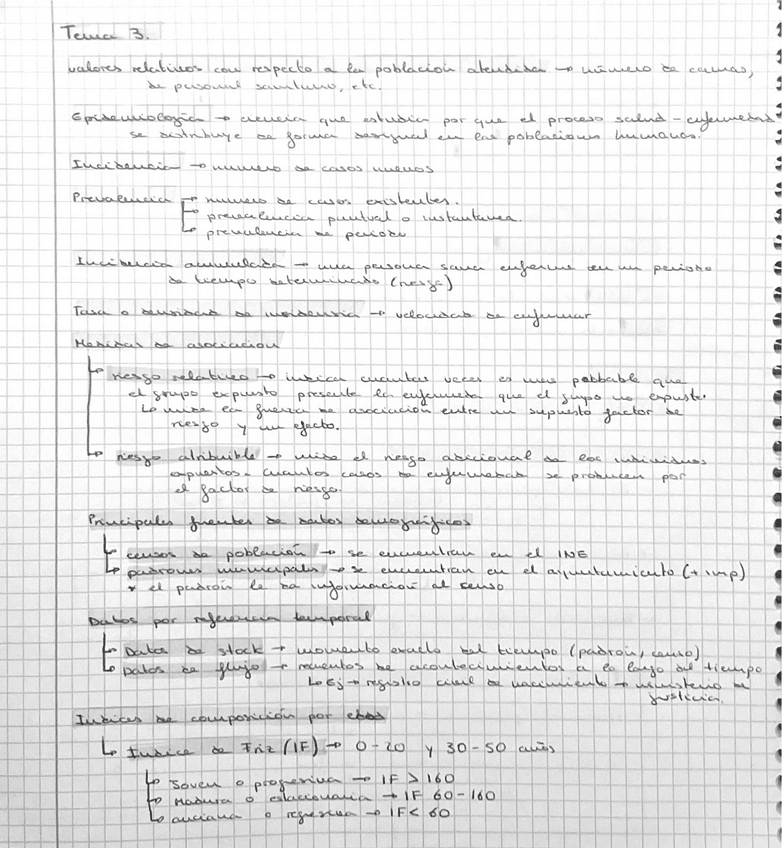 Tema 3.
valores relativos con respecto a la población atendida → número de camas,
de personal sanitario, etc.
Epidemiología → ciencia que estudia por que el proceso salud - enfermedad
se distribuye de forma desigual en las poblaciones humanas.
Incidencia → numero de casos nuevos
Prevalencia → numero de casos existentes.
→ prevalencia puntual o instantanea.
→ prevalencia de periodo
Incidencia acumulada → una persona sana enferme en un periodo
de tiempo determinado (riesgo)
Tasa o densidad de incidencia → velocidad de enfermar
Medidas de asociación
↳ riesgo relativo → indica cuantas veces es mas pobbable que
el grupo expuesto presente la enfermedad que el grupo no expuesto.
↳ mide la fuerza de asociación entre un supuesto factor de
riesgo y un efecto.
↳ riesgo atribuible → mide el riesgo adicional de los individuos
expuestos. Cuantos casos de enfermedad se producen por
el factor de riesgo.
Principales fuentes de datos demográficos
↳ censos de población → se encuentran en el INE
↳ padrones municipales → se encuentran en el ayuntamiento (+ imp)
* el padrón le da información al censo
Datos por referencia temporal
↳ Datos de stock → momento exacto del tiempo (padrón, censo)
↳ Datos de flujo → recuentos de acontecimientos a lo largo del tiempo
↳ Ej → registro civil de nacimiento → ministerio de
justicia.
Indices de composición por edad
↳ Indice de Friz (IF) → 0-20 y 30-50 años
↳ Joven o progresiva → IF > 160
↳ Madura o estacionaria → IF 60-160
↳ anciana o regresiva → IF < 60